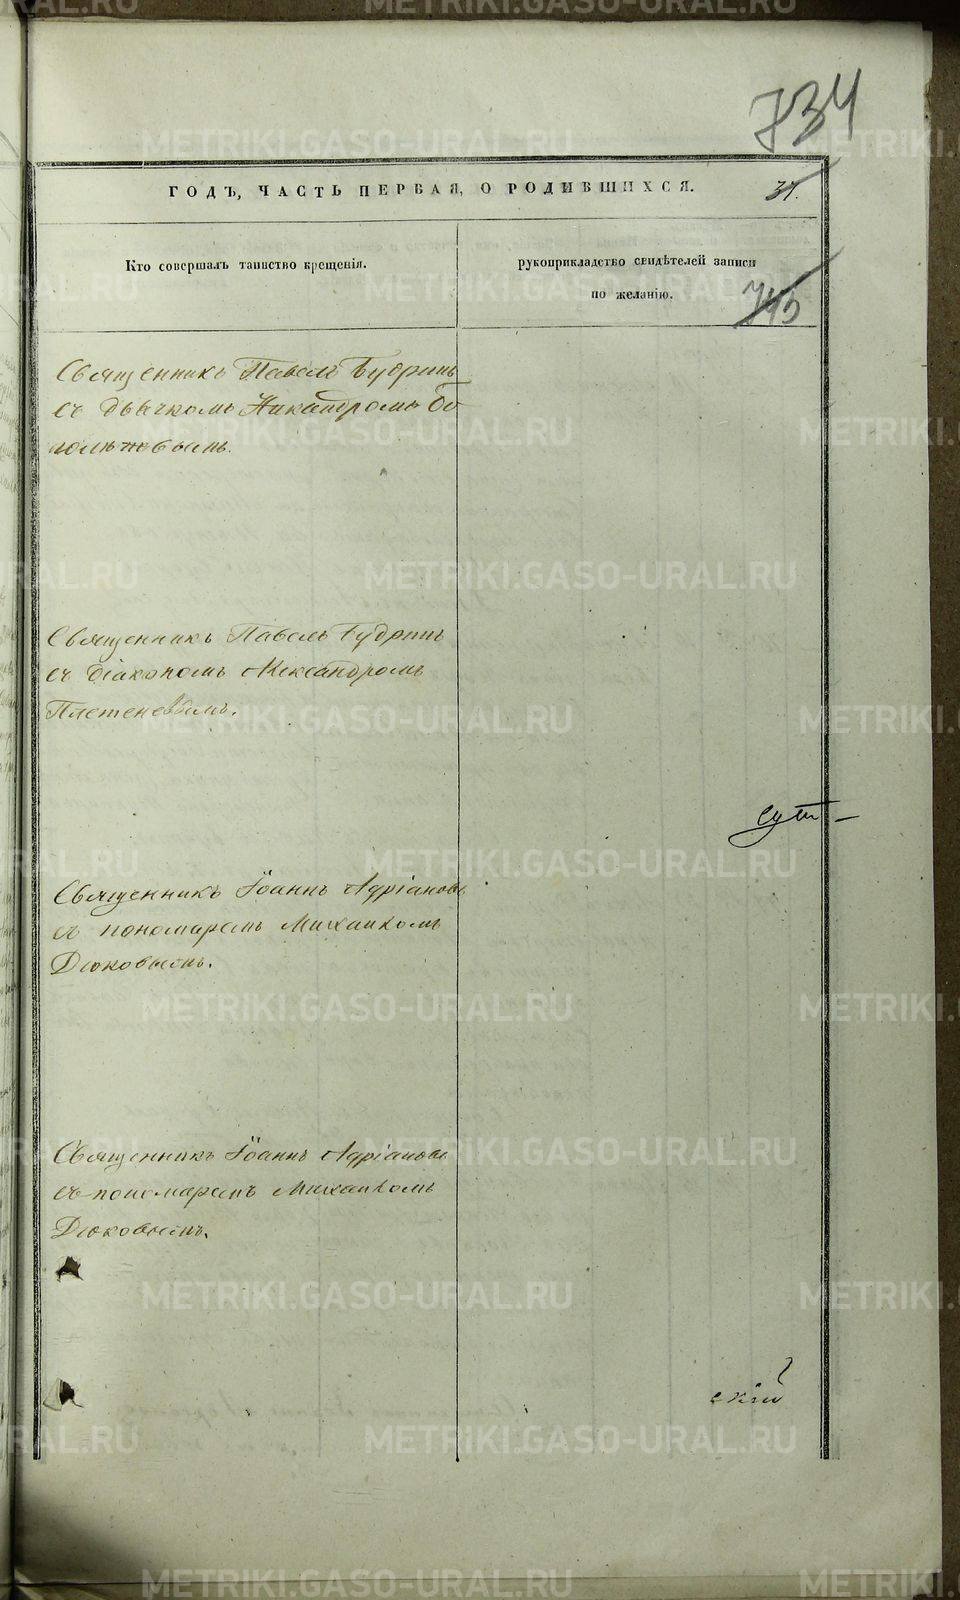 734
ГОДЪ, ЧАСТЬ ПЕРВАЯ, О РОДИВШИХСЯ.
37.
Кто совершалъ таинство крещенія.
рукоприкладство свидѣтелей записи
по желанію.
743
Священникъ Павелъ Будринъ
съ дьячкомъ Никандромъ Бо
голѣповымъ.
Священникъ Павелъ Будринъ
съ діакономъ Александромъ
Плетеневымъ.
Священникъ Іоаннъ Адріановъ
съ пономаремъ Михаиломъ
Дюковымъ.
Священникъ Іоаннъ Адріановъ
съ пономаремъ Михаиломъ
Дюковымъ.
скій
METRIKI.GASO-URAL.RU